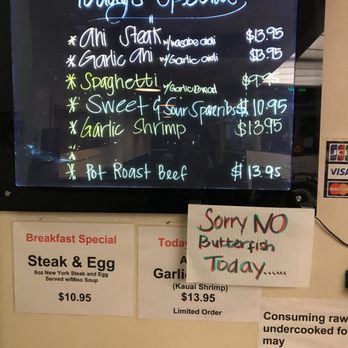 Today's Special
* Ahi Steak w/wasabi aioli $13.95
* Garlic Ahi w/Garlic aioli $13.95
* Spaghetti w/Garlic Bread $9.95
* Sweet & Sour Spareribs $10.95
* Garlic Shrimp $13.95
*
* Pot Roast Beef $13.95
Sorry NO
Butterfish
Today......
Breakfast Special
Steak & Egg
6oz New York Steak and Egg
Served w/Miso Soup
$10.95
Today
A
Garlic
(Kauai Shrimp)
$13.95
Limited Order
VISA
Consuming raw
undercooked fo
may